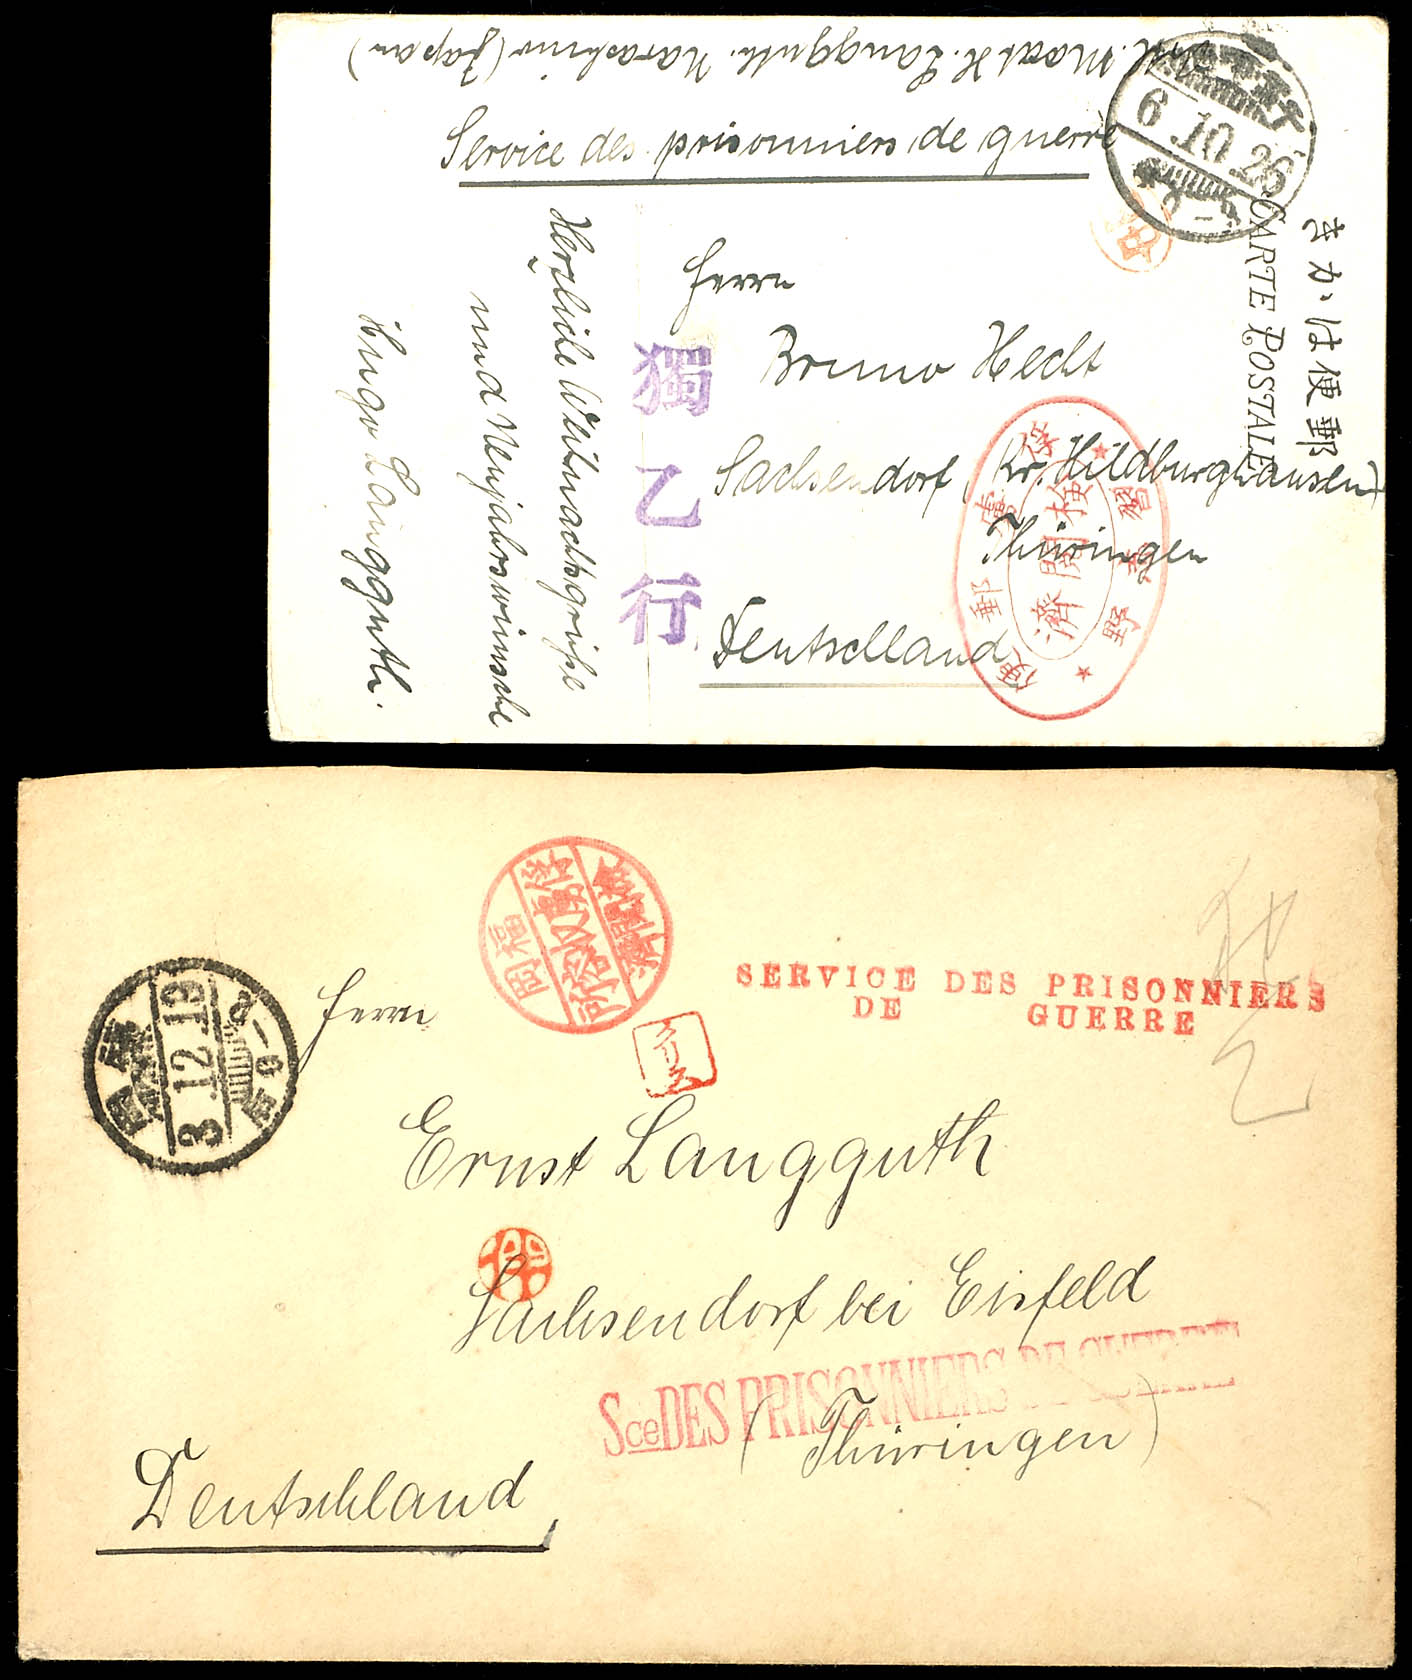 Maat H. Langguth. Narashino (Japan)
Service des prisonniers de guerre
6.10.26
きかは便郵
CARTE POSTALE
Herrn
Bruno Hecht
Sachsendorf (Kr. Hildburghausen)
Thüringen
Deutschland
獨乙行
Herzliche Weihnachtsgrüße
und Neujahrswünsche
Hugo Langguth.
檢閲濟
俘虜郵便
習志野
福岡
俘虜収容所
3.12.19
SERVICE DES PRISONNIERS
DE GUERRE
クリス
Herrn
Ernst Langguth
Sachsendorf bei Eisfeld
Sce DES PRISONNIERS DE GUERRE
(Thüringen)
Deutschland